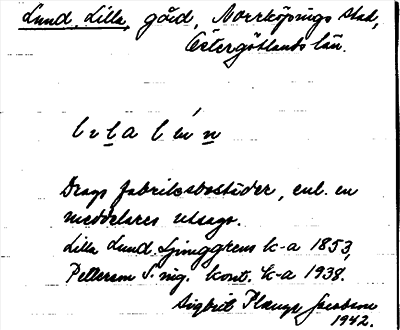 Lund, Lilla, gård, Norrköpings stad,
Östergötlands län.
Drags fabriksbostäder, enl. en
meddelares utsago.
Lilla Lund. Ljunggrens k-a 1853,
Pettersson S. mg. kont. k-a 1938.
Sigbrit Plænge Jacobson
1942.